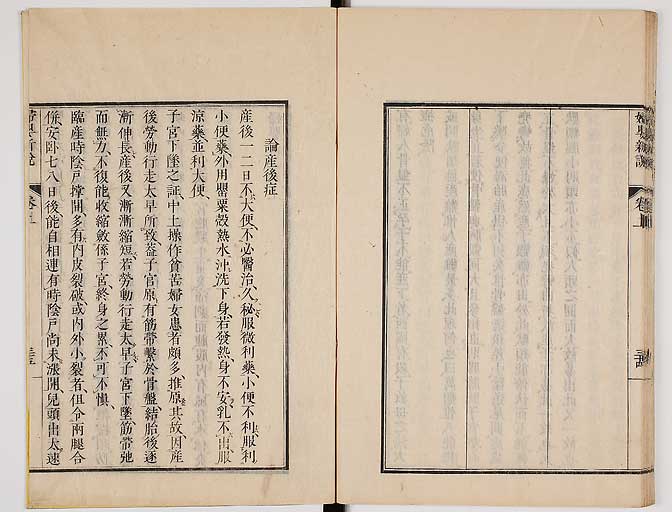 婦嬰新說
卷上
論產後症
產後一二日不大便、不必醫治、久秘、服微利藥、小便不利、服利
小便藥、外用罌粟殼熱水沖洗下身、若發熱身不安、乳不出、服
涼藥並利大便、
子宮下墜之証、中土操作貧苦婦女患者頗多、推原其故、因產
後勞動行走太早所致、蓋子宮原有筋帶繫於骨盤、結胎後逐
漸伸長、產後又漸漸縮短、若勞動行走太早、子宮下墜、筋帶弛
而無力、不復能收縮斂係子宮、終身之累、不可不慎、
臨產時陰戶撐開、多有內皮裂破、或內外小裂者、但令兩腿合
倂、安臥七八日後、能自相連、有時陰戶尚未漲開、兒頭出太速
婦嬰新說